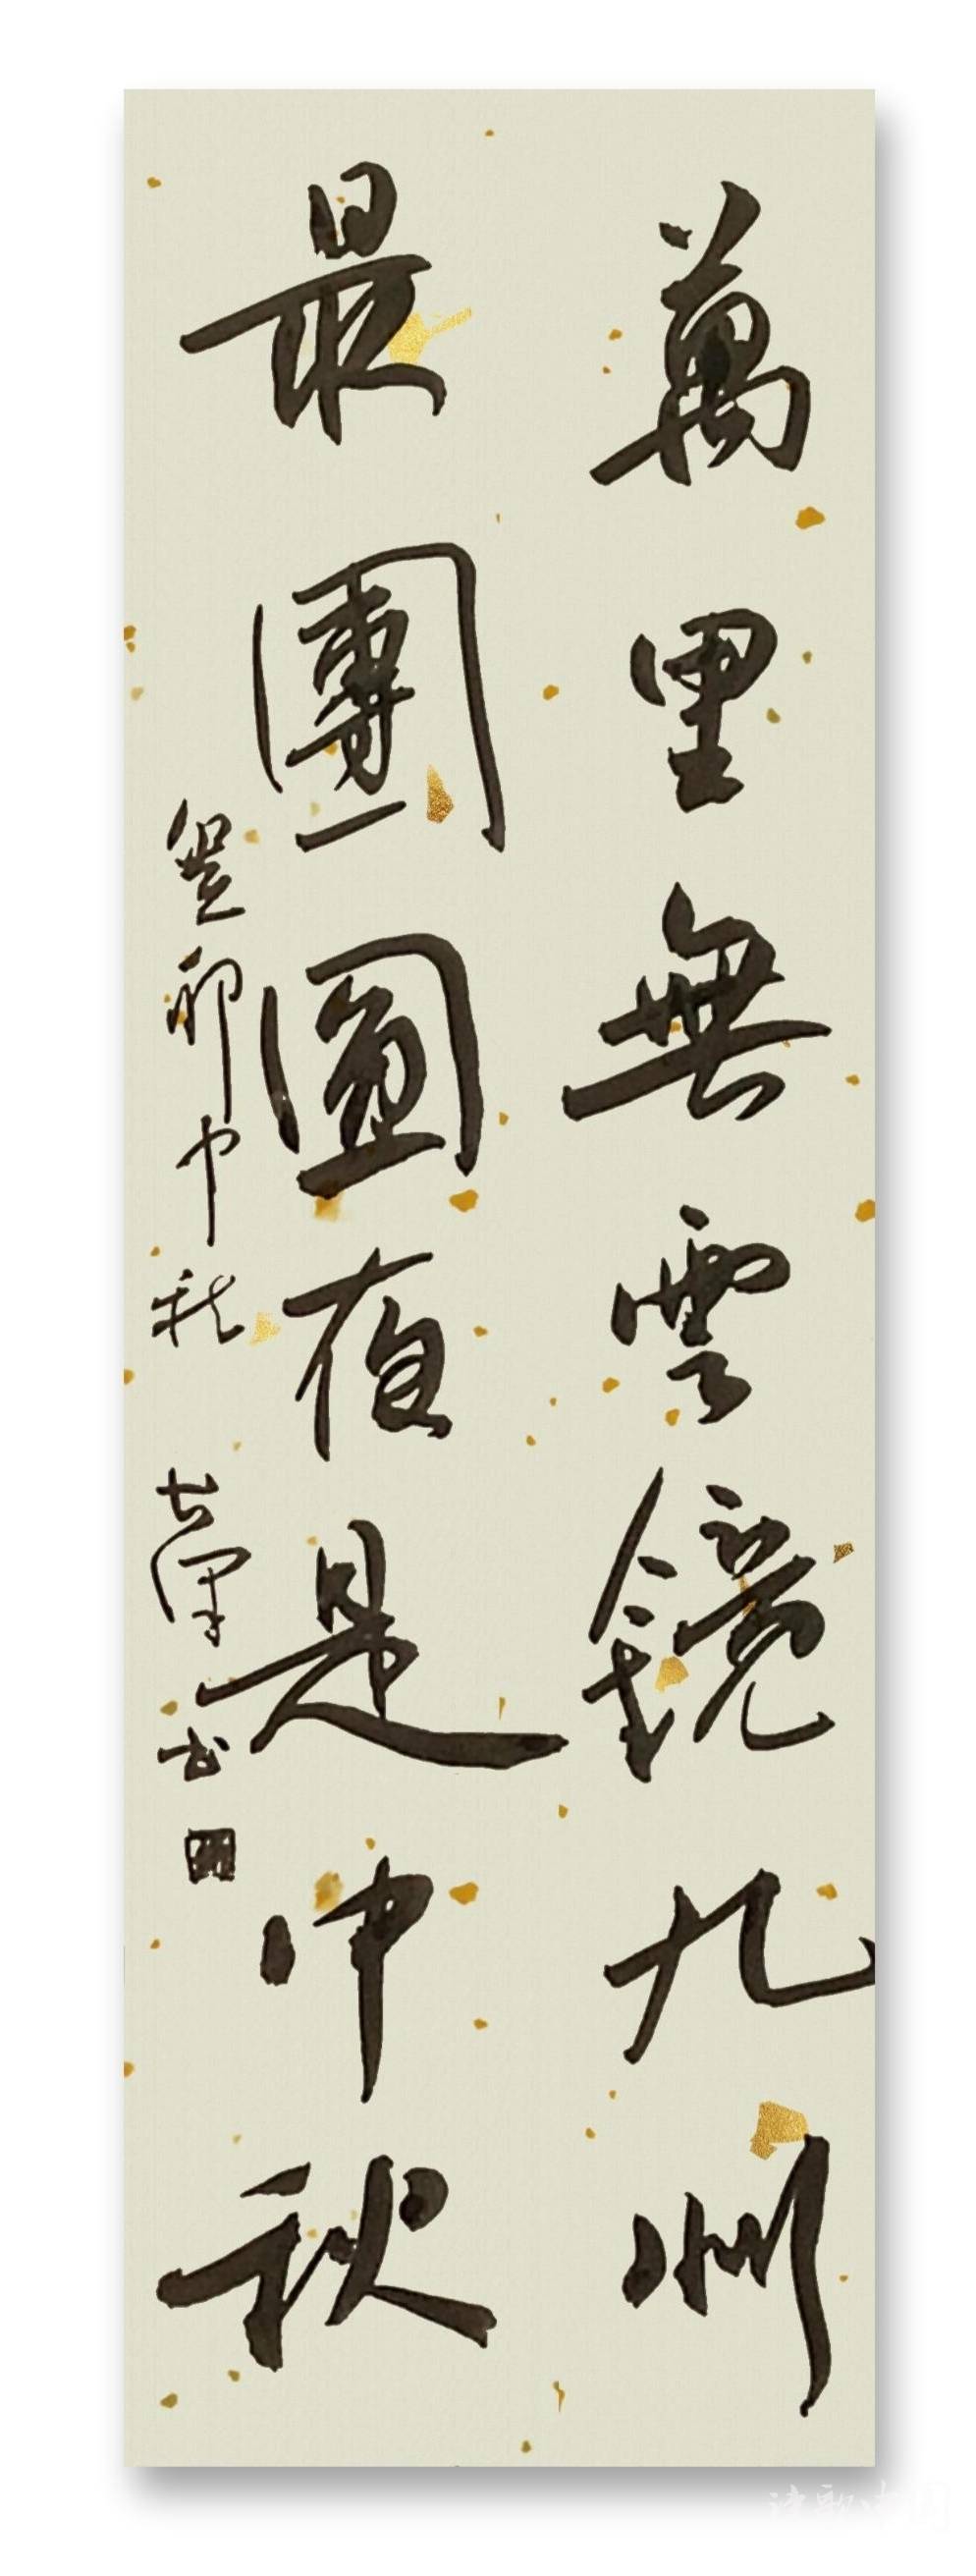 萬里無雲鏡九州
最團圓夜是中秋
癸卯中秋
書